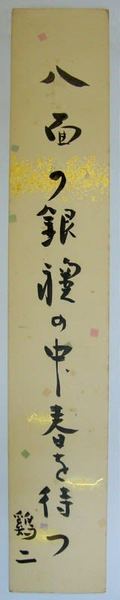 八面の銀襖の中春を待つ
鷄二